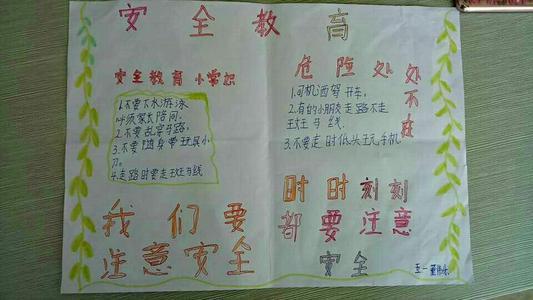 安全教育
安全教育小常识
1.不要下水游泳
叫须家长陪同.
2.不要乱穿马路,
3.不要随身带玩具小
刀.
4.走路时要走斑马线
我们要
注意安全
危险处处
不在
1.司机酒驾开车,
2.有的小朋友走路不走
斑马线.
3.不要走时低头玩手机
时时刻刻
都要注意
安全
五一